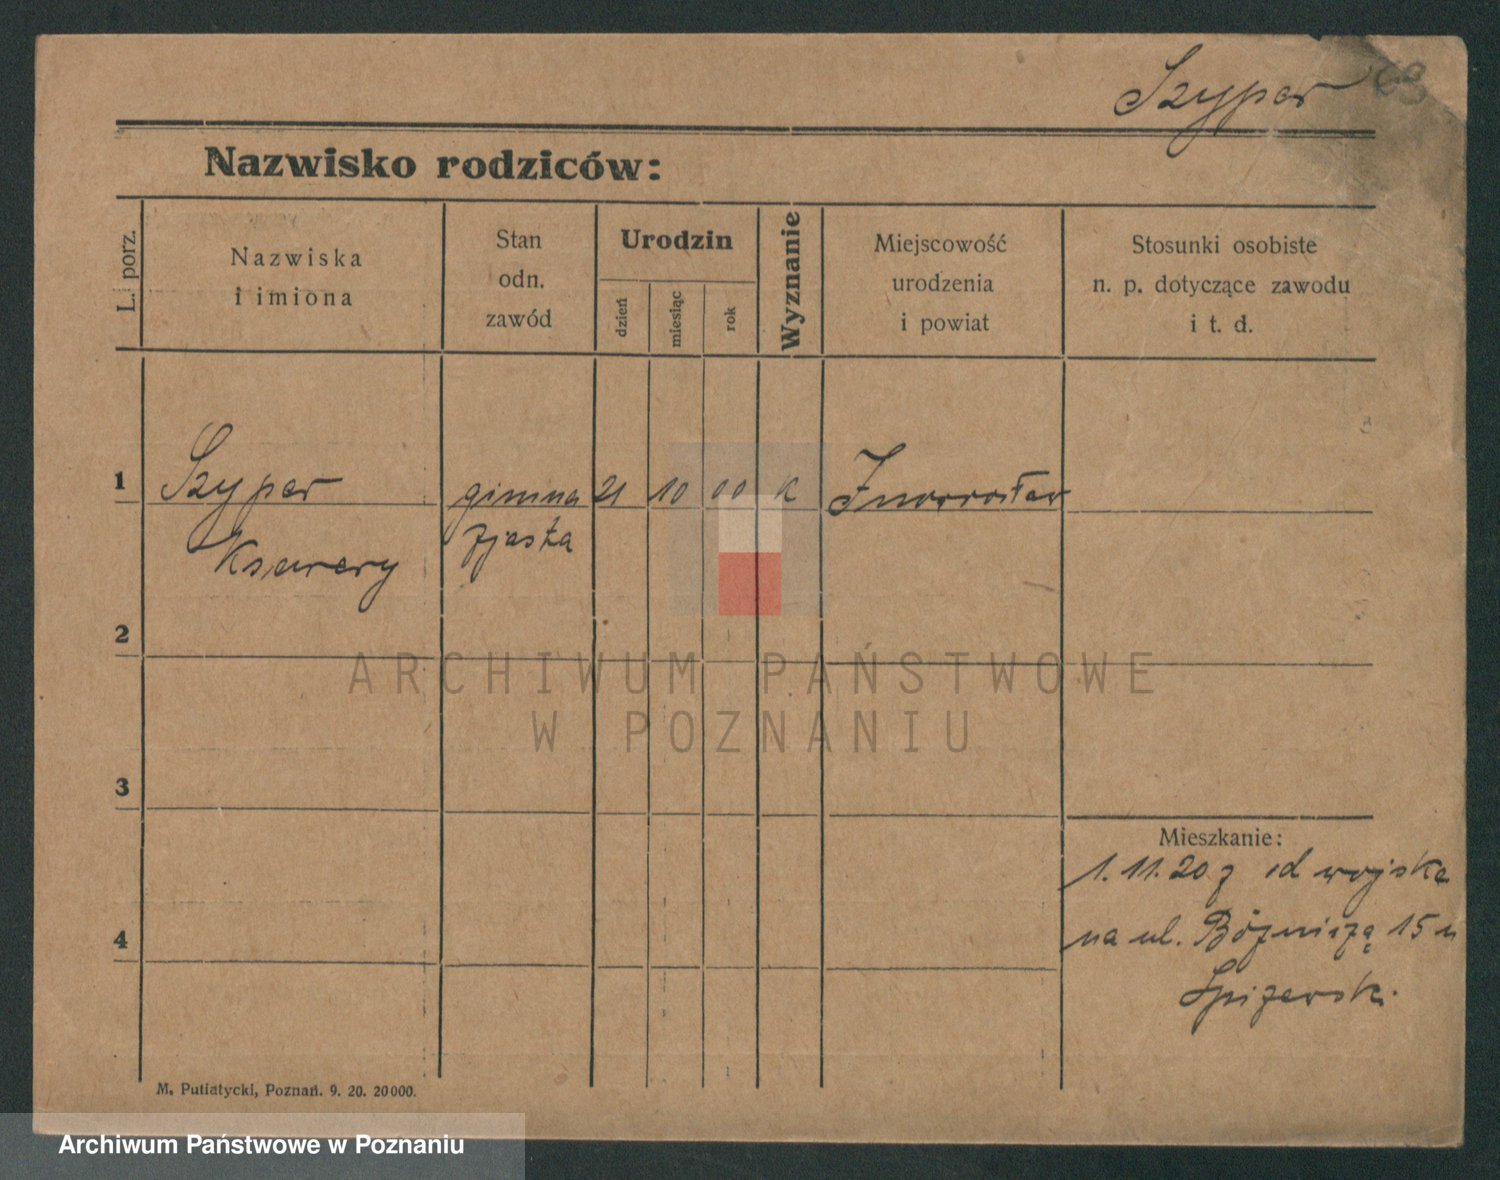 Szyper
63
Nazwisko rodziców:
L. porz.
Nazwiska
i imiona
Stan
odn.
zawód
Urodzin
dzień
miesiąc
rok
Wyznanie
Miejscowość
urodzenia
i powiat
Stosunki osobiste
n. p. dotyczące zawodu
i t. d.
1
Szyper
Ksawery
gimna
zjasta
21
10
00
K
Inowrocław
2
3
4
Mieszkanie:
1.11.20 z od wojska
na ul. Bóżniczą 15 u
Spiżarski
M. Putiatycki, Poznań. 9. 20. 20000.
ARCHIWUM PAŃSTWOWE
W POZNANIU
Archiwum Państwowe w Poznaniu